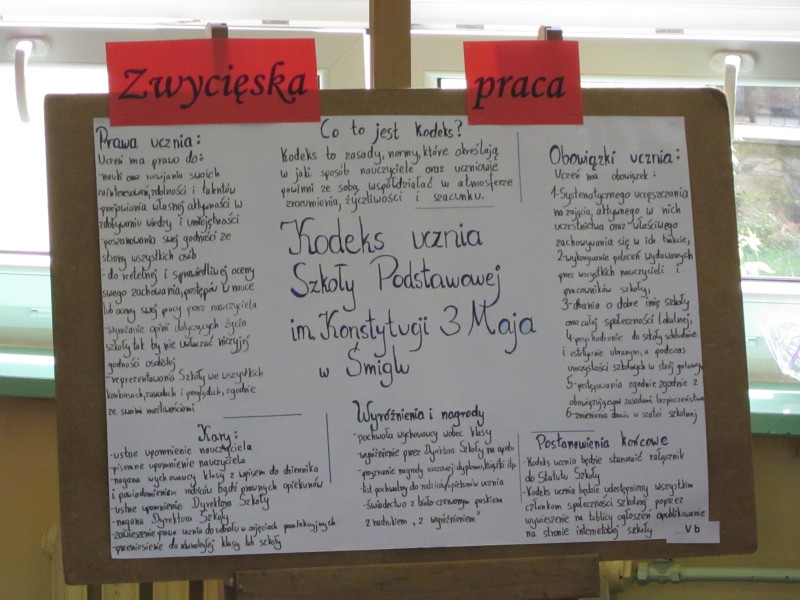 Zwycięska
praca
Prawa ucznia:
Uczeń ma prawo do:
-nauki oraz rozwijania swoich
zainteresowań, zdolności i talentów
-przejawiania własnej aktywności w
zdobywaniu wiedzy i umiejętności
-poszanowania swej godności ze
strony wszystkich osób
-do rzetelnej i sprawiedliwej oceny
swego zachowania, postępów w nauce
lub oceny swej pracy przez nauczyciela
-wyrażanie opinii dotyczących życia
szkoły tak by nie uwłaczać niczyjej
godności osobistej
-reprezentowania Szkoły we wszystkich
konkursach, zawodach i zgodnie
ze swoimi możliwościami
Co to jest Kodeks?
Kodeks to zasady, normy, które określają
w jaki sposób nauczyciele oraz uczniowie
powinni ze sobą współdziałać w atmosferze
zrozumienia, życzliwości i szacunku.
Kodeks ucznia
Szkoły Podstawowej
im. Konstytucji 3 Maja
w Śmiglu
Obowiązki ucznia:
Uczeń ma obowiązek:
1-Systematycznego uczęszczania
na zajęcia, aktywnego w nich
uczestnictwa oraz właściwego
zachowywania się w ich trakcie,
2-wykonywanie poleceń wydawanych
przez wszystkich nauczycieli i
pracowników szkoły,
3-dbania o dobre imię szkoły
oraz całej społeczności lokalnej,
4-przychodzenie do szkoły schludnie
i estetycznie ubranym, a podczas
uroczystości szkolnych w strój galowym
5-postępowania zgodnie zgodnie z
obowiązującymi zasadami bezpieczeństwa
6-zmieniania obuwia w szatni szkolnej
Kary:
-ustne upomnienie nauczyciela
-pisemne upomnienie nauczyciela
-nagana wychowawcy klasy z wpisem do dziennika
i powiadomieniem rodziców bądź prawnych opiekunów
-ustne upomnienie Dyrektora Szkoły
-nagana Dyrektora Szkoły
-zawieszenie prawa ucznia do udziału w zajęciach pozalekcyjnych
-przeniesienie do równoległej klasy lub szkoły
Wyróżnienia i nagrody
-pochwała wychowawcy wobec klasy
-wyróżnienie przez Dyrektora Szkoły na apelu
-przyznanie nagrody rzeczowej dyplomu, książki itp.
-list pochwalny do rodziców/opiekunów ucznia
-świadectwo z biało-czerwonym paskiem
z nadrukiem „z wyróżnieniem"
Postanowienia końcowe
-Kodeks ucznia będzie stanowić załącznik
do Statutu Szkoły
-Kodeks ucznia będzie udostępniony wszystkim
członkom społeczności szkolnej, poprzez
wywieszenie na tablicy ogłoszeń opublikowanie
na stronie internetowej szkoły
V b